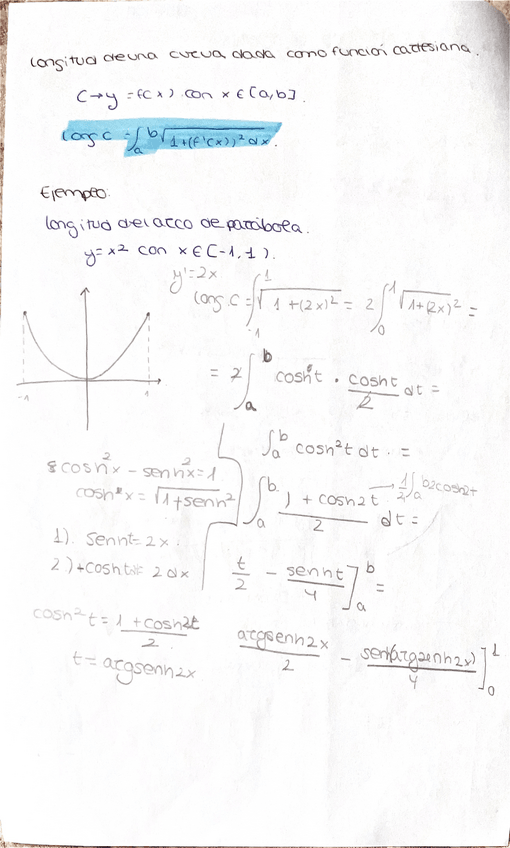 longitud de una curva dada como función cartesiana.
C→y = f(x) con x ∈ [a,b].
long C = ∫_a^b √(1+(f'(x))² dx.
Ejemplo:
longitud del arco de parábola.
y = x² con x ∈ (-1,1).
y' = 2x
long. C = ∫_{-1}^1 √(1+(2x)²) = 2∫_0^1 √(1+(2x)²) =
= 2∫_a^b cosh t · cosh t/2 dt =
-1 1
∫_a^b cosh² t dt · =
cosh² x - senh² x = 1
cosh x = √(1+senh²)
∫_a^b (1 + cosh 2t)/2 dt = → 1/2 ∫_a^b 2cosh2t
1). senht = 2x.
2) + cosh t = 2 dx
t/2 - senht/4 ]_a^b =
cosh² t = (1 + cosh 2t)/2
t = argsenh 2x
argsenh 2x/2 - senh(argsenh 2x)/4 ]_0^1